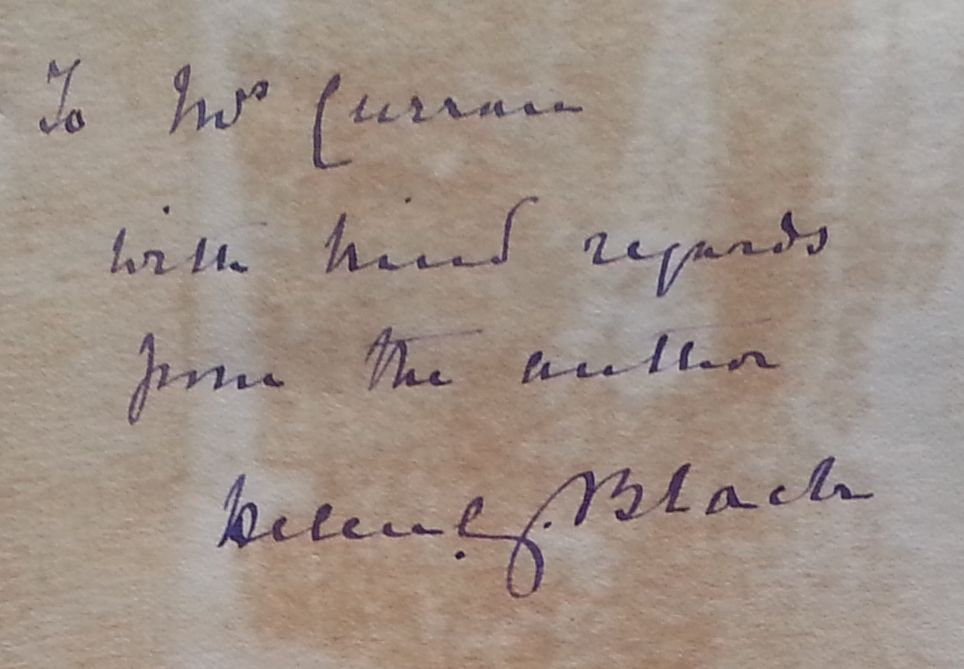 To Mrs Curran
with kind regards
from the author
Helen C. Black